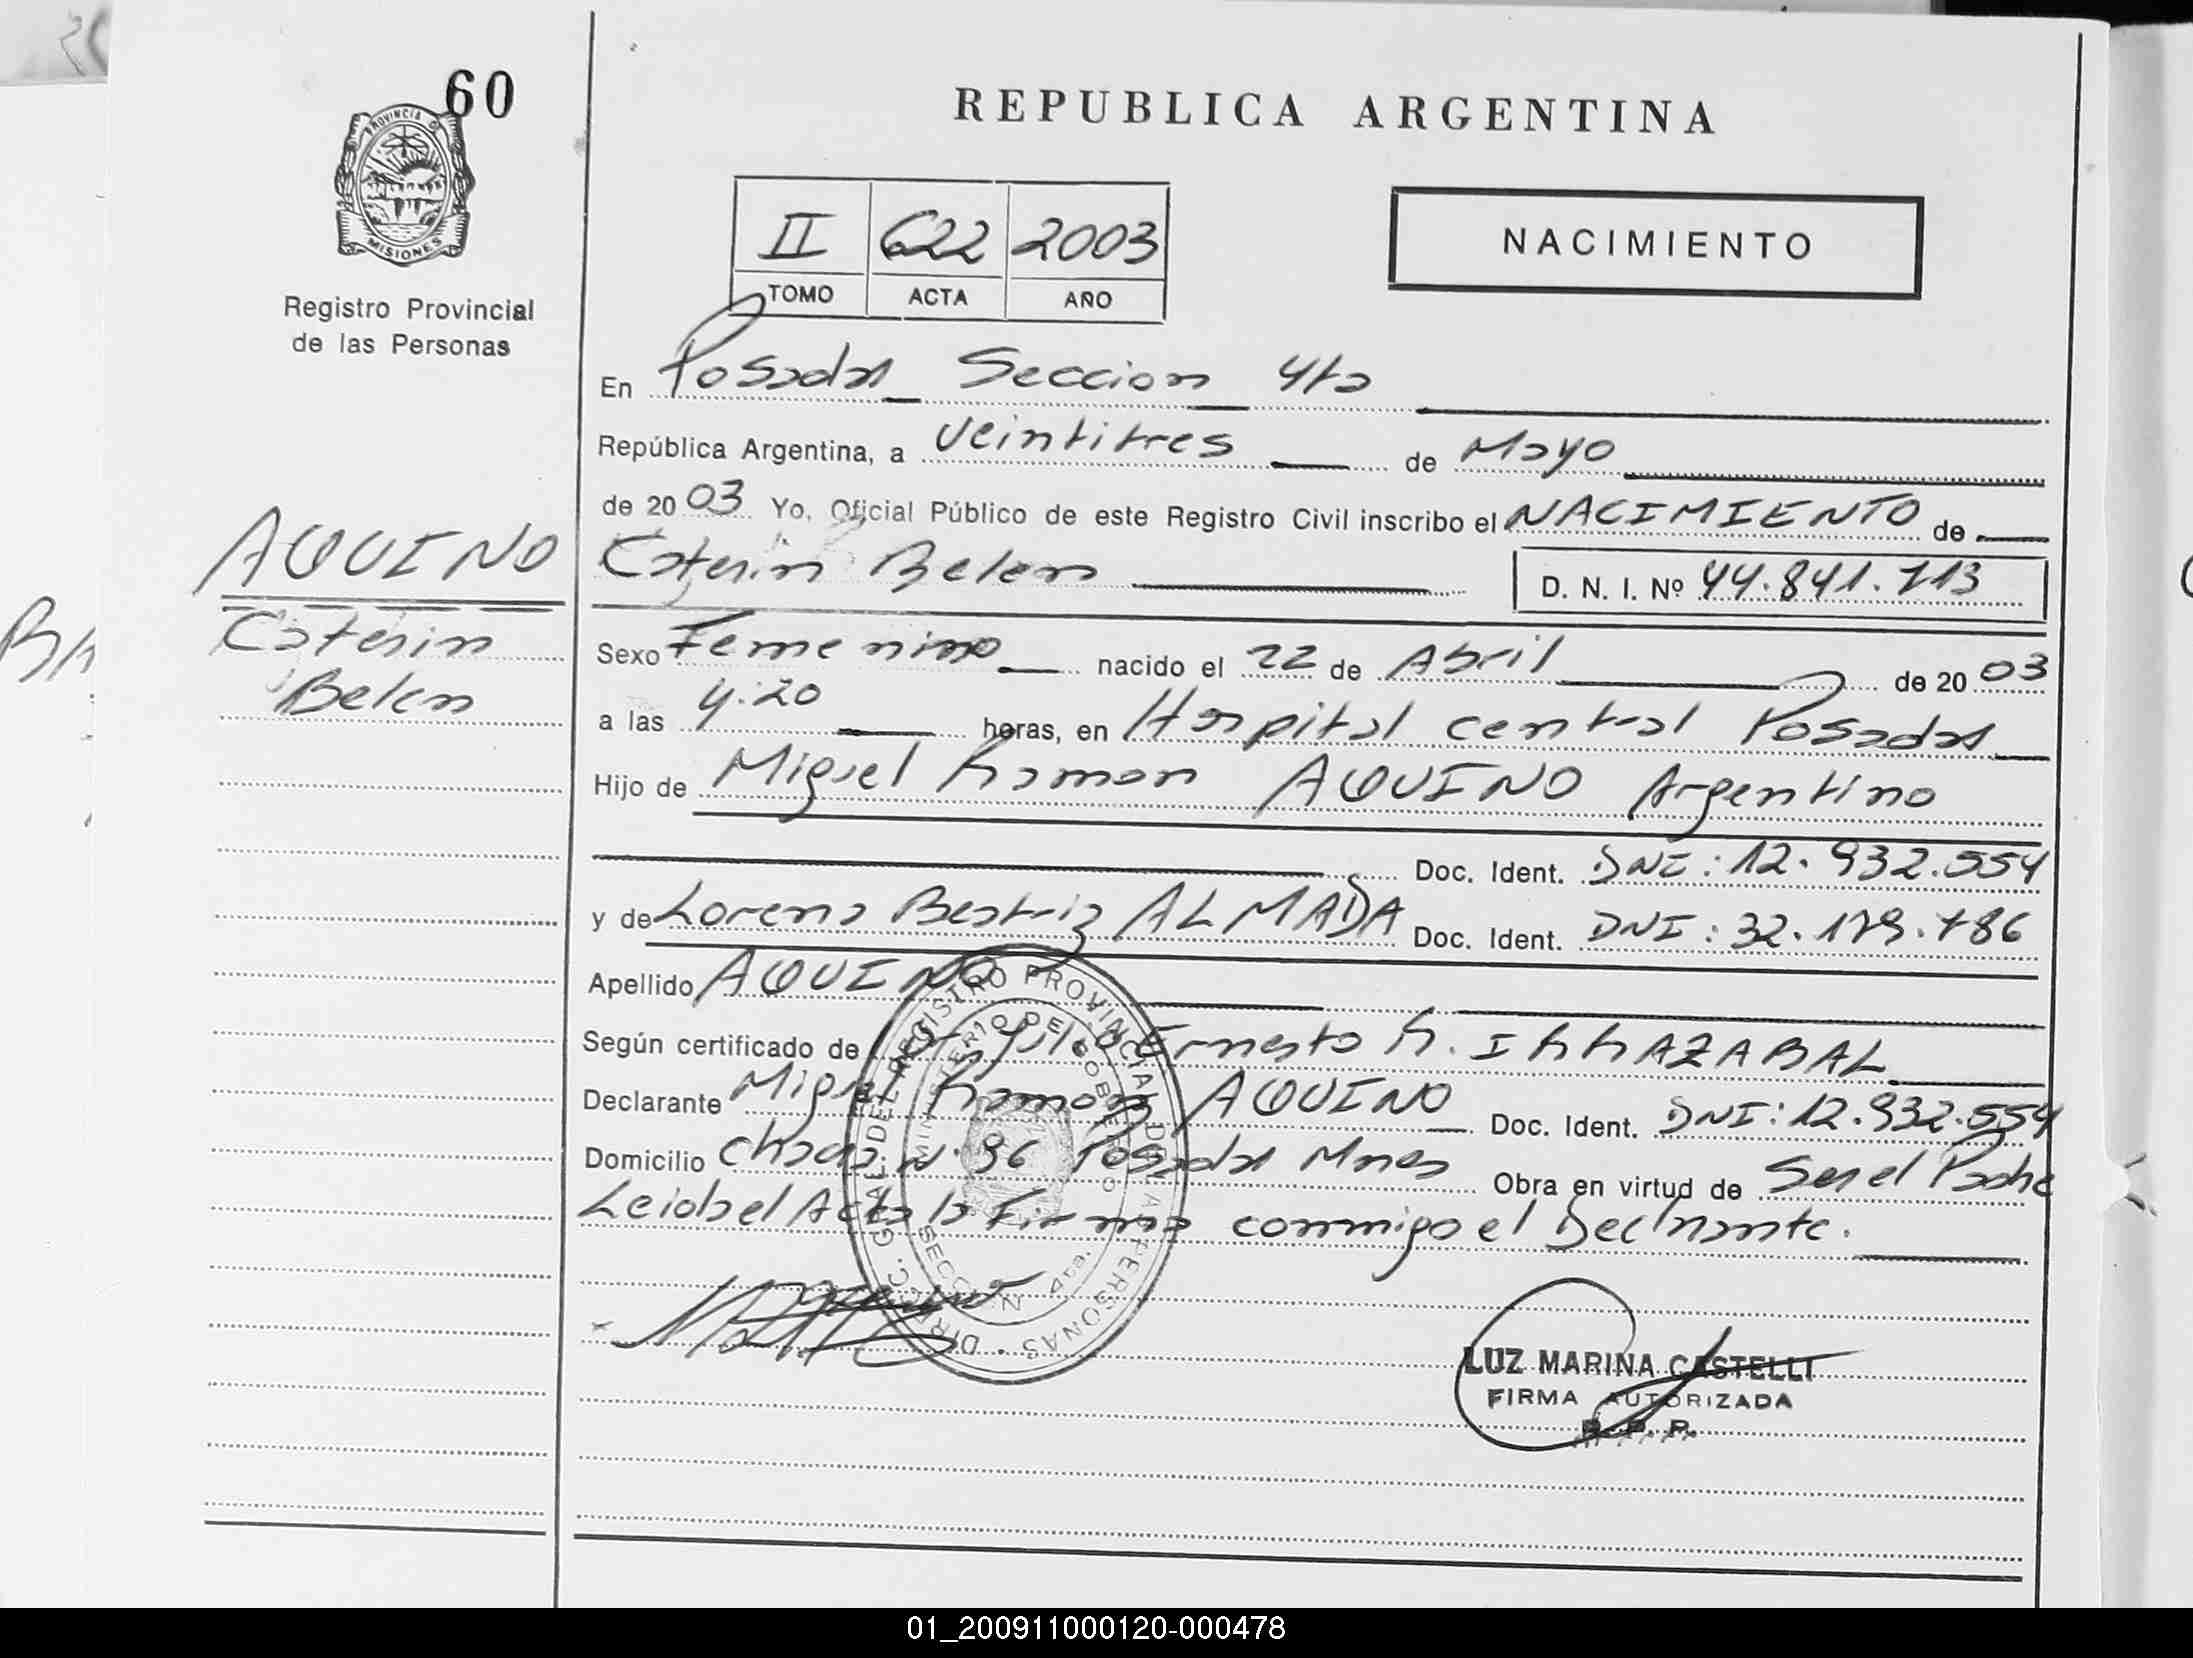 60
PROVINCIA DE
MISIONES
Registro Provincial
de las Personas
REPUBLICA ARGENTINA
II 622 2003
TOMO ACTA AÑO
NACIMIENTO
En Posadas Seccion 4ta
República Argentina, a veintitres de Mayo
de 2003 Yo, Oficial Público de este Registro Civil inscribo el NACIMIENTO de
AQUINO
Caterin Belen
D. N. I. Nº 44.841.113
Caterin
Belen
Sexo Femenino nacido el 22 de Abril de 2003
a las 4:20 horas, en Hospital central Posadas
Hijo de Miguel Ramon AQUINO Argentino
Doc. Ident. DNI: 12.932.554
y de Lorena Beatriz ALMADA Doc. Ident. DNI: 32.179.786
Apellido AQUINO
Según certificado de Dr. Julio Ernesto R. IRRAZABAL
Declarante Miguel Ramon AQUINO Doc. Ident. DNI: 12.932.554
Domicilio Chacra N. 96 Posadas Mnes Obra en virtud de Ser el Padre
Leida el Acta la Firma conmigo el Declarante.
DIRECC. GRAL. DEL REGISTRO PROVINCIAL DE LAS PERSONAS
MINISTERIO DE GOBIERNO
SECCION 4ta.
LUZ MARINA CASTELLI
FIRMA AUTORIZADA
R. P. P.
01_200911000120-000478